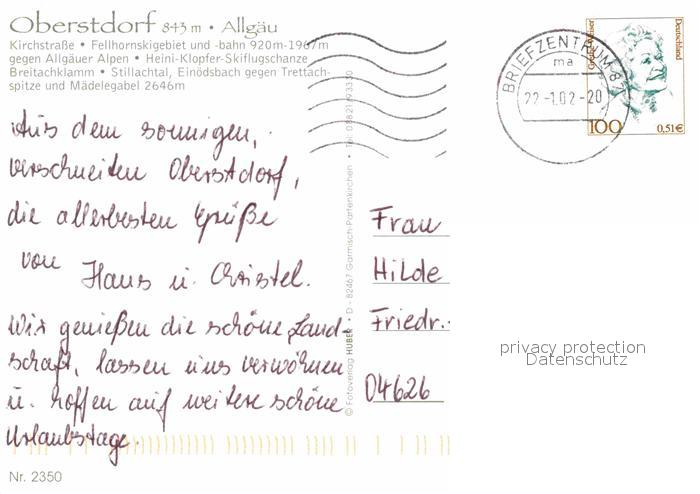 Oberstdorf 843 m • Allgäu
Kirchstraße • Fellhornskigebiet und -bahn 920m-1967m
gegen Allgäuer Alpen • Heini-Klopfer-Skiflugschanze
Breitachklamm • Stillachtal, Einödsbach gegen Trettach-
spitze und Mädelegabel 2646m
Aus dem sonnigen,
verschneiten Oberstdorf,
die allerbesten Grüße
von Hans u. Christel.
Wir genießen die schöne Land-
schaft, lassen uns verwöhnen
u. hoffen auf weitere schöne
Urlaubstage.
Nr. 2350
© Fotoverlag HUBER • D - 82467 Garmisch-Partenkirchen •
BRIEFZENTRUM 8
ma
22-1.02-20
Deutschland
100
0,51€
Frau
Hilde
Friedr.:
04626
privacy protection
Datenschutz